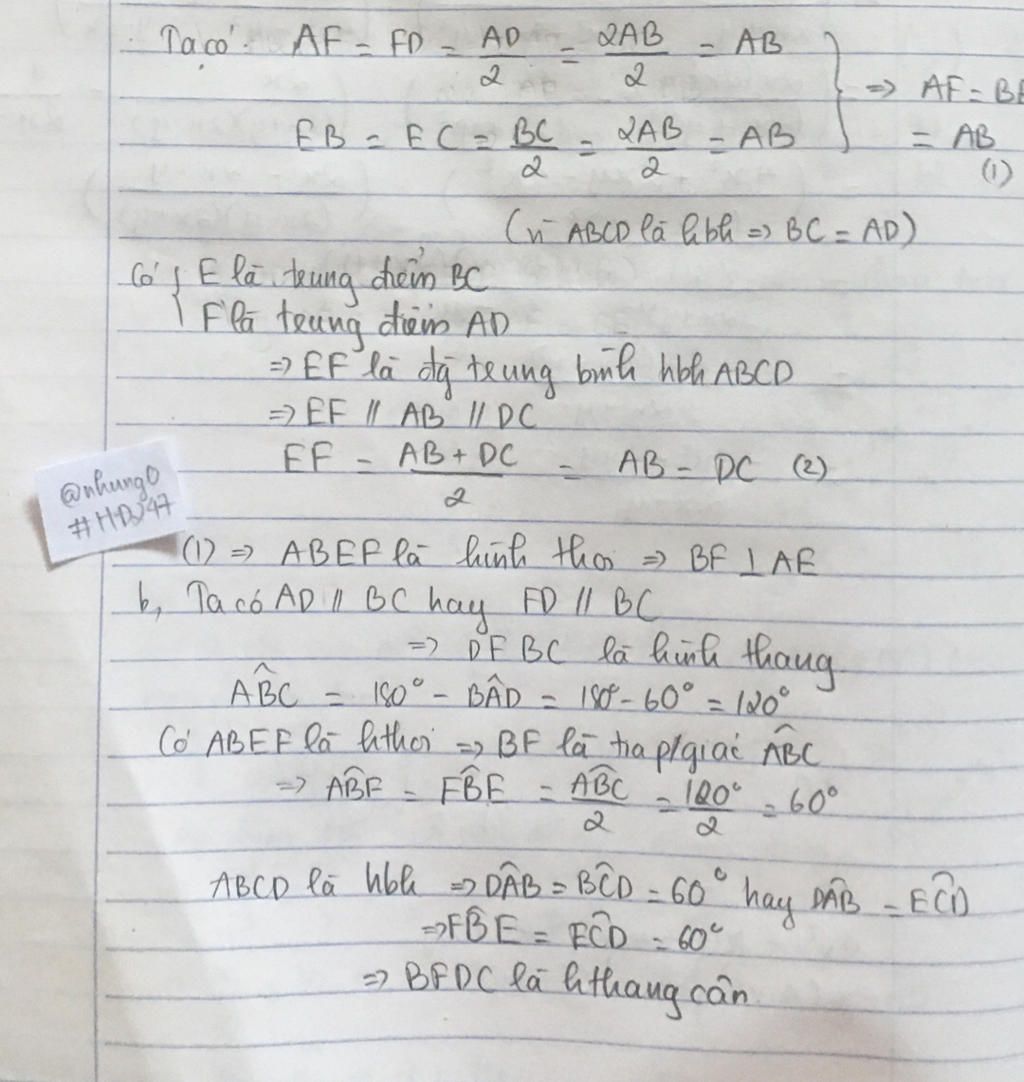 Ta có: AF = FD = AD/2 = 2AB/2 = AB
EB = EC = BC/2 = 2AB/2 = AB
=> AF = BE
= AB
(1)
(vì ABCD là hbh => BC = AD)
Có { E là trung điểm BC
F là trung điểm AD
=> EF là đg trung bình hbh ABCD
=> EF // AB // DC
EF = (AB + DC)/2 = AB = DC (2)
@nhung0
#HDJ47
(1) => ABEF là hình thoi => BF ⊥ AE
b, Ta có AD // BC hay FD // BC
=> DFBC là hình thang
AB̂C = 180° - BÂD = 180° - 60° = 120°
Có ABEF là hthoi => BF là tia p/giác AB̂C
=> AB̂F = FB̂E = AB̂C/2 = 120°/2 = 60°
ABCD là hbh => DÂB = BĈD = 60° hay DÂB = EĈD
=> FB̂E = EĈD = 60°
=> BFDC là hthang cân